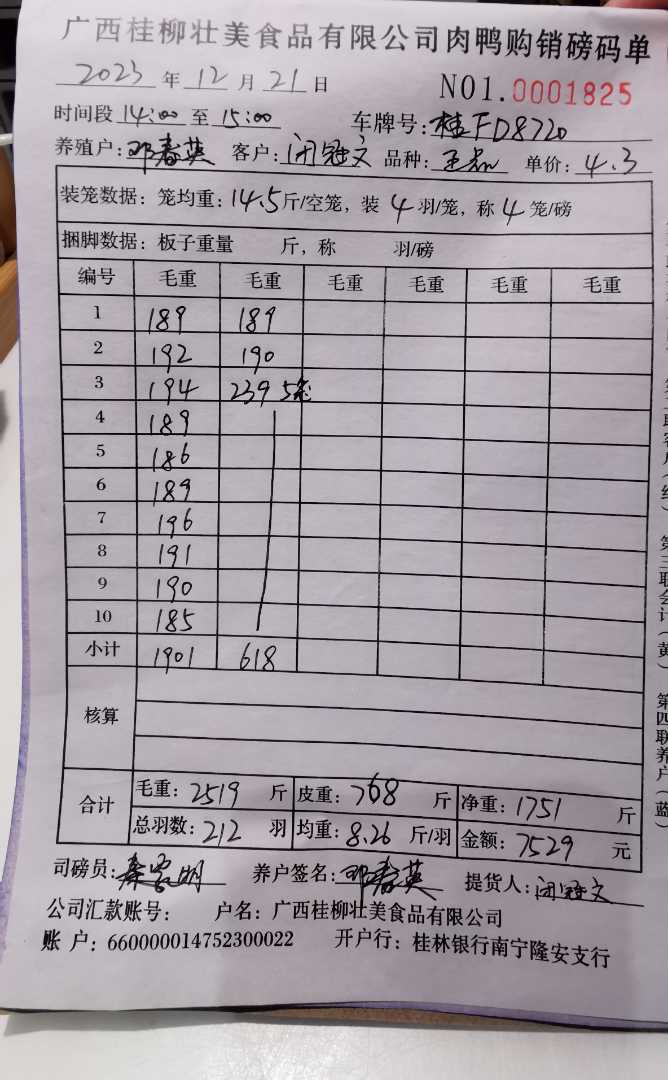 广西桂柳壮美食品有限公司肉鸭购销磅码单
2023 年 12 月 21 日 NO1.0001825
时间段 14:00 至 15:00 车牌号: 桂FD8720
养殖户: 邓春英 客户: 闭冠文 品种: 单价: 4.3
装笼数据: 笼均重: 14.5 斤/空笼, 装 4 羽/笼, 称 4 笼/磅
捆脚数据: 板子重量 斤, 称 羽/磅
编号 毛重 毛重 毛重 毛重 毛重 毛重
1 189 189
2 192 190
3 194 239 5笼
4 189
5 186
6 189
7 196
8 191
9 190
10 185
小计 1901 618
核算
合计 毛重: 2519 斤 皮重: 768 斤 净重: 1751 斤
总羽数: 212 羽 均重: 8.26 斤/羽 金额: 7529 元
司磅员: 养户签名: 邓春英 提货人: 闭冠文
公司汇款账号: 户名: 广西桂柳壮美食品有限公司
账 户: 660000014752300022 开户行: 桂林银行南宁隆安支行
第三联会计(黄) 第四联养户(蓝)